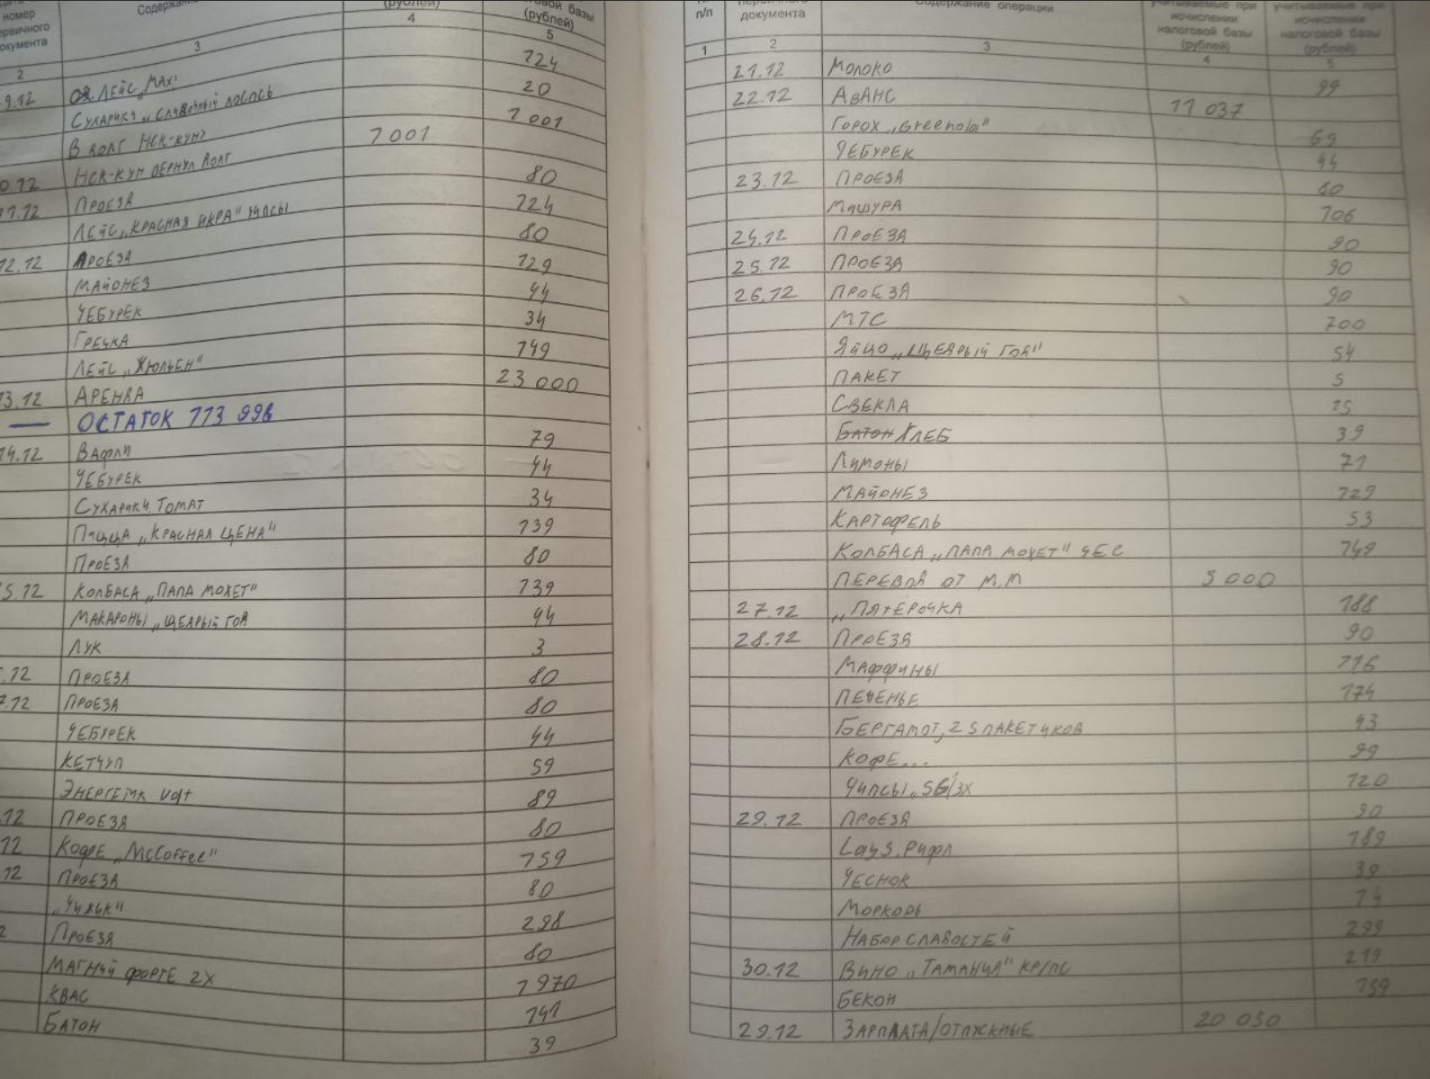 номер
документа
(рублей)
(рублей)
2 3 4 5
9.12 ОЗ. ЛЕЙС „МАХ" 124
СУХАРИКИ „СЛИВОЧНЫЙ ЛОСОСЬ 20
В ДОЛГ НСК-КУМУ 1 001
НСК-КУМ ВЕРНУЛ ДОЛГ 1 001
ПРОЕЗД 80
ЛЕЙС „КРАСНАЯ ИКРА" ЧИПСЫ 124
12.12 ПРОЕЗД 80
МАЙОНЕЗ 129
ЧЕБУРЕК 44
ГРЕЧКА 34
ЛЕЙС „ЖЮЛЬЕН" 149
13.12 АРЕНДА 23 000
— ОСТАТОК 113 998
14.12 ВАФЛИ 79
ЧЕБУРЕК 44
СУХАРИКИ ТОМАТ 34
ПИЦЦА „КРАСНАЯ ЦЕНА" 139
ПРОЕЗД 80
5.12 КОЛБАСА „ПАПА МОЖЕТ" 139
МАКАРОНЫ „ЩЕДРЫЙ ГОД 44
ЛУК 3
.12 ПРОЕЗД 80
7.12 ПРОЕЗД 80
ЧЕБУРЕК 44
КЕТЧУП 59
ЭНЕРГЕТИК Volt 89
12 ПРОЕЗД 80
12 КОФЕ „McCoffee" 159
.12 ПРОЕЗД 80
298
2 ПРОЕЗД 80
МАГНИЙ ФОРТЕ 2X 1 970
КВАС 141
БАТОН 39
п/п документа Содержание операции учитываемые при исчислении налоговой базы (рублей) учитываемые при исчислении налоговой базы (рублей)
1 2 3 4 5
21.12 МОЛОКО 99
22.12 АВАНС 11 037
ГОРОХ „Greenola" 69
ЧЕБУРЕК 44
23.12 ПРОЕЗД 80
МАШУРА 106
24.12 ПРОЕЗД 90
25.12 ПРОЕЗД 90
26.12 ПРОЕЗД 90
МТС 700
ЯЙЦО „ЩЕДРЫЙ ГОД" 54
ПАКЕТ 5
СВЕКЛА 15
БАТОН ХЛЕБ 39
ЛИМОНЫ 71
МАЙОНЕЗ 129
КАРТОФЕЛЬ 53
КОЛБАСА „ПАПА МОЖЕТ" ЧЕС 149
ПЕРЕВОД ОТ М.М 5 000
27.12 „ПЯТЁРОЧКА 188
28.12 ПРОЕЗД 90
МАФФИНЫ 116
ПЕЧЕНЬЕ 174
БЕРГАМОТ, 25 ПАКЕТИКОВ 43
КОФЕ... 99
ЧИПСЫ 120
29.12 ПРОЕЗД 90
Lays. РИФЛ 189
ЧЕСНОК 39
МОРКОВЬ 14
НАБОР СЛАДОСТЕЙ 299
30.12 ВИНО „ТАМАНИЯ" КР/ПС 219
БЕКОН 159
29.12 ЗАРПЛАТА/ОТПУСКНЫЕ 20 050